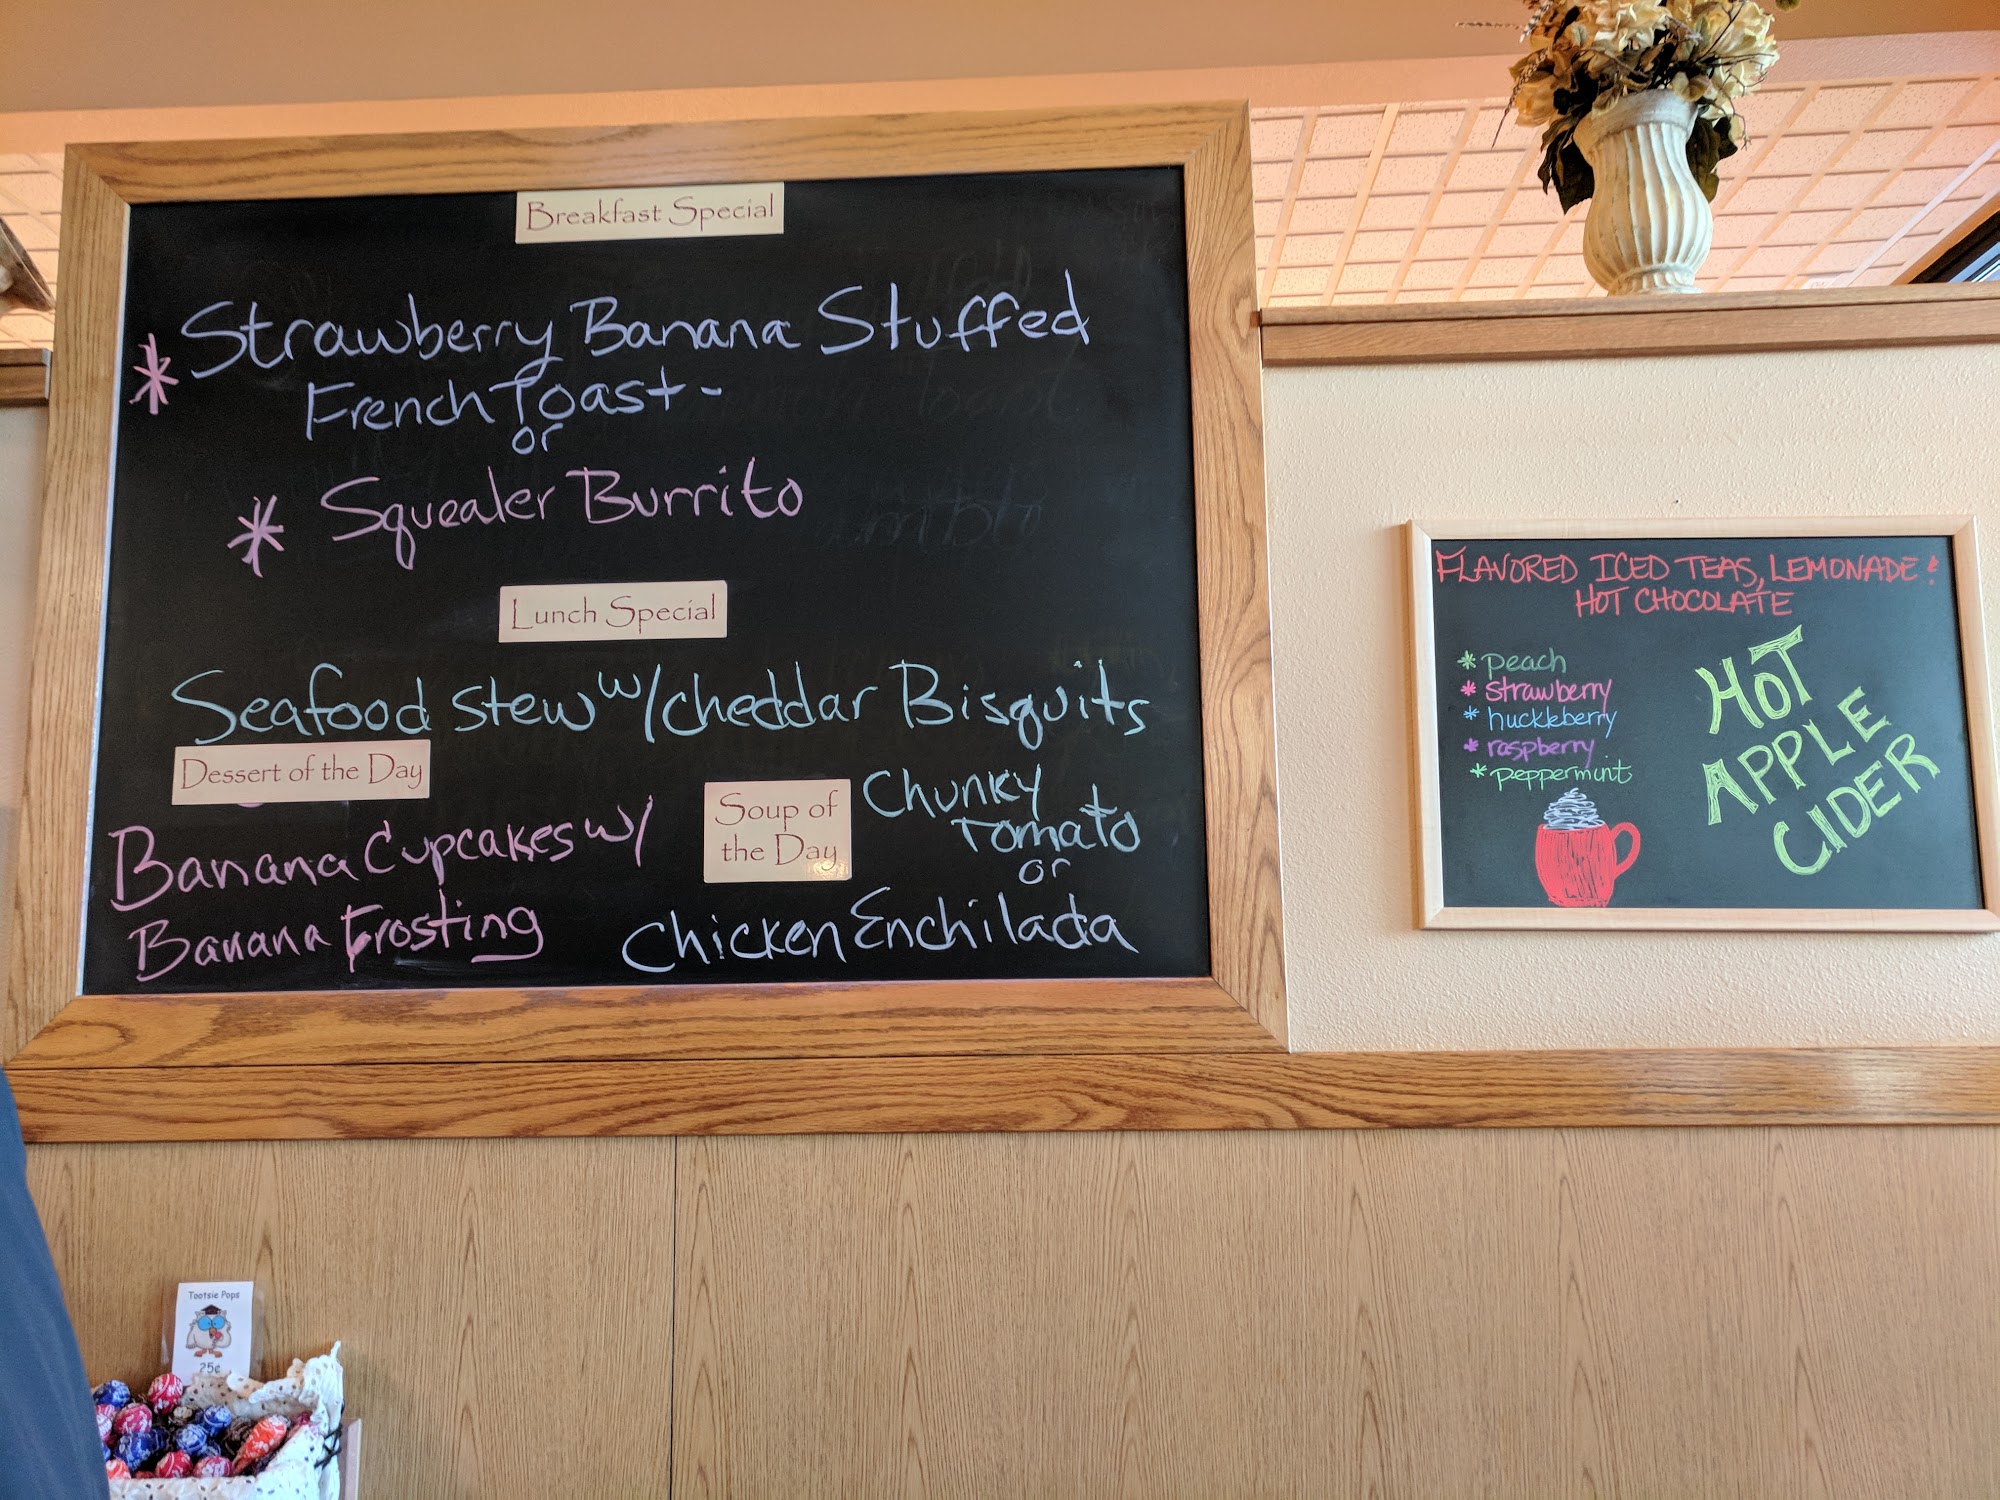 Breakfast Special
* Strawberry Banana Stuffed
French Toast -
or
* Squealer Burrito
Lunch Special
Seafood Stew w/ Cheddar Bisquits
Dessert of the Day
Banana Cupcakes w/
Banana Frosting
Soup of
the Day
Chunky
Tomato
or
Chicken Enchilada
FLAVORED ICED TEAS, LEMONADE &
HOT CHOCOLATE
* peach
* strawberry
* huckleberry
* raspberry
* peppermint
HOT
APPLE
CIDER
Tootsie Pops
25¢